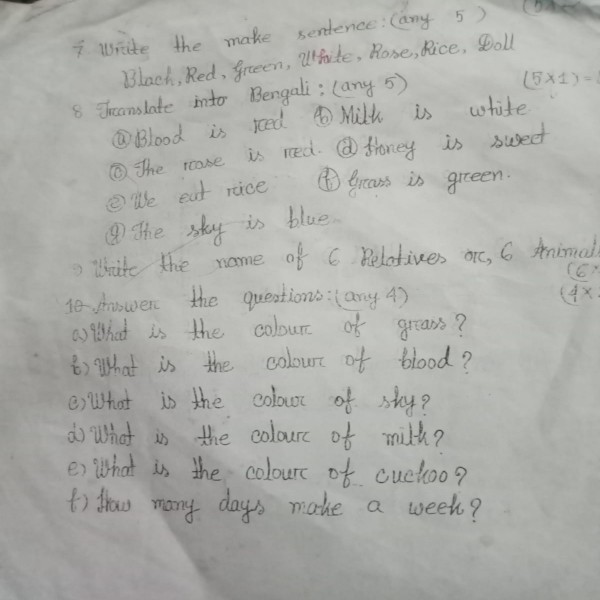 7 Write the make sentence: (any 5)
Black, Red, Green, White, Rose, Rice, Doll
8 Translate into Bengali: (any 5) (5×1)=
(a) Blood is red (b) Milk is white
(c) The rose is red. (d) Honey is sweet
(e) We eat rice (f) Grass is green.
(g) The sky is blue
Write the name of 6 Relatives or, 6 Animal
(6×
10 Answer the questions: (any 4) (4×
a) What is the colour of grass?
b) What is the colour of blood?
c) What is the colour of sky?
d) What is the colour of milk?
e) What is the colour of cuckoo?
f) How many days make a week?